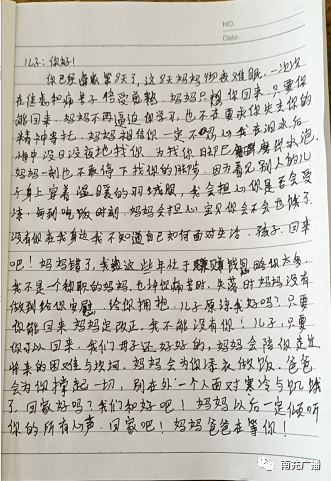 NO.
Date.
儿子:你好!
你已经离家第8天了,这8天妈妈彻夜难眠,一次次
在焦急和痛苦中倍受煎熬,妈妈只想你回来,只要你
能回来,妈妈不再逼迫你学习,也不在要求你失去你的
精神寄托,妈妈相信你一定不
悔中没日没夜地找你,为找你脚巴 磨得水泡,
妈妈一刻也不敢停下找你的脚步,因为看见别人的儿
子身上穿着温暖的羽绒服,我会担心你是否会受
冻,每到吃饭时刻,妈妈会担心宝贝你会不会也饿了,
没有你在我身边我不知道自己如何面对生活,孩子,回来
吧!妈妈错了,我这些年忙于赚钱忽略你太多,
我不是个称职的妈妈,也许你病苦时、失落时妈妈没有
做到给你安慰,给你拥抱,儿子原谅我好吗?只要
你能回来妈妈定改正,我不能没有你!儿子,只要
你可以回来,我们母子还好好的,妈妈会陪你走过
将来的困难与坎坷,妈妈会为你添衣做饭,爸爸
会为你撑起一切,别在外一个人面对寒冷与饥饿
了,回家好吗?我们和好吧!妈妈以后一定倾听
你的所有心声,回家吧!妈妈爸爸在等你!
南充广播